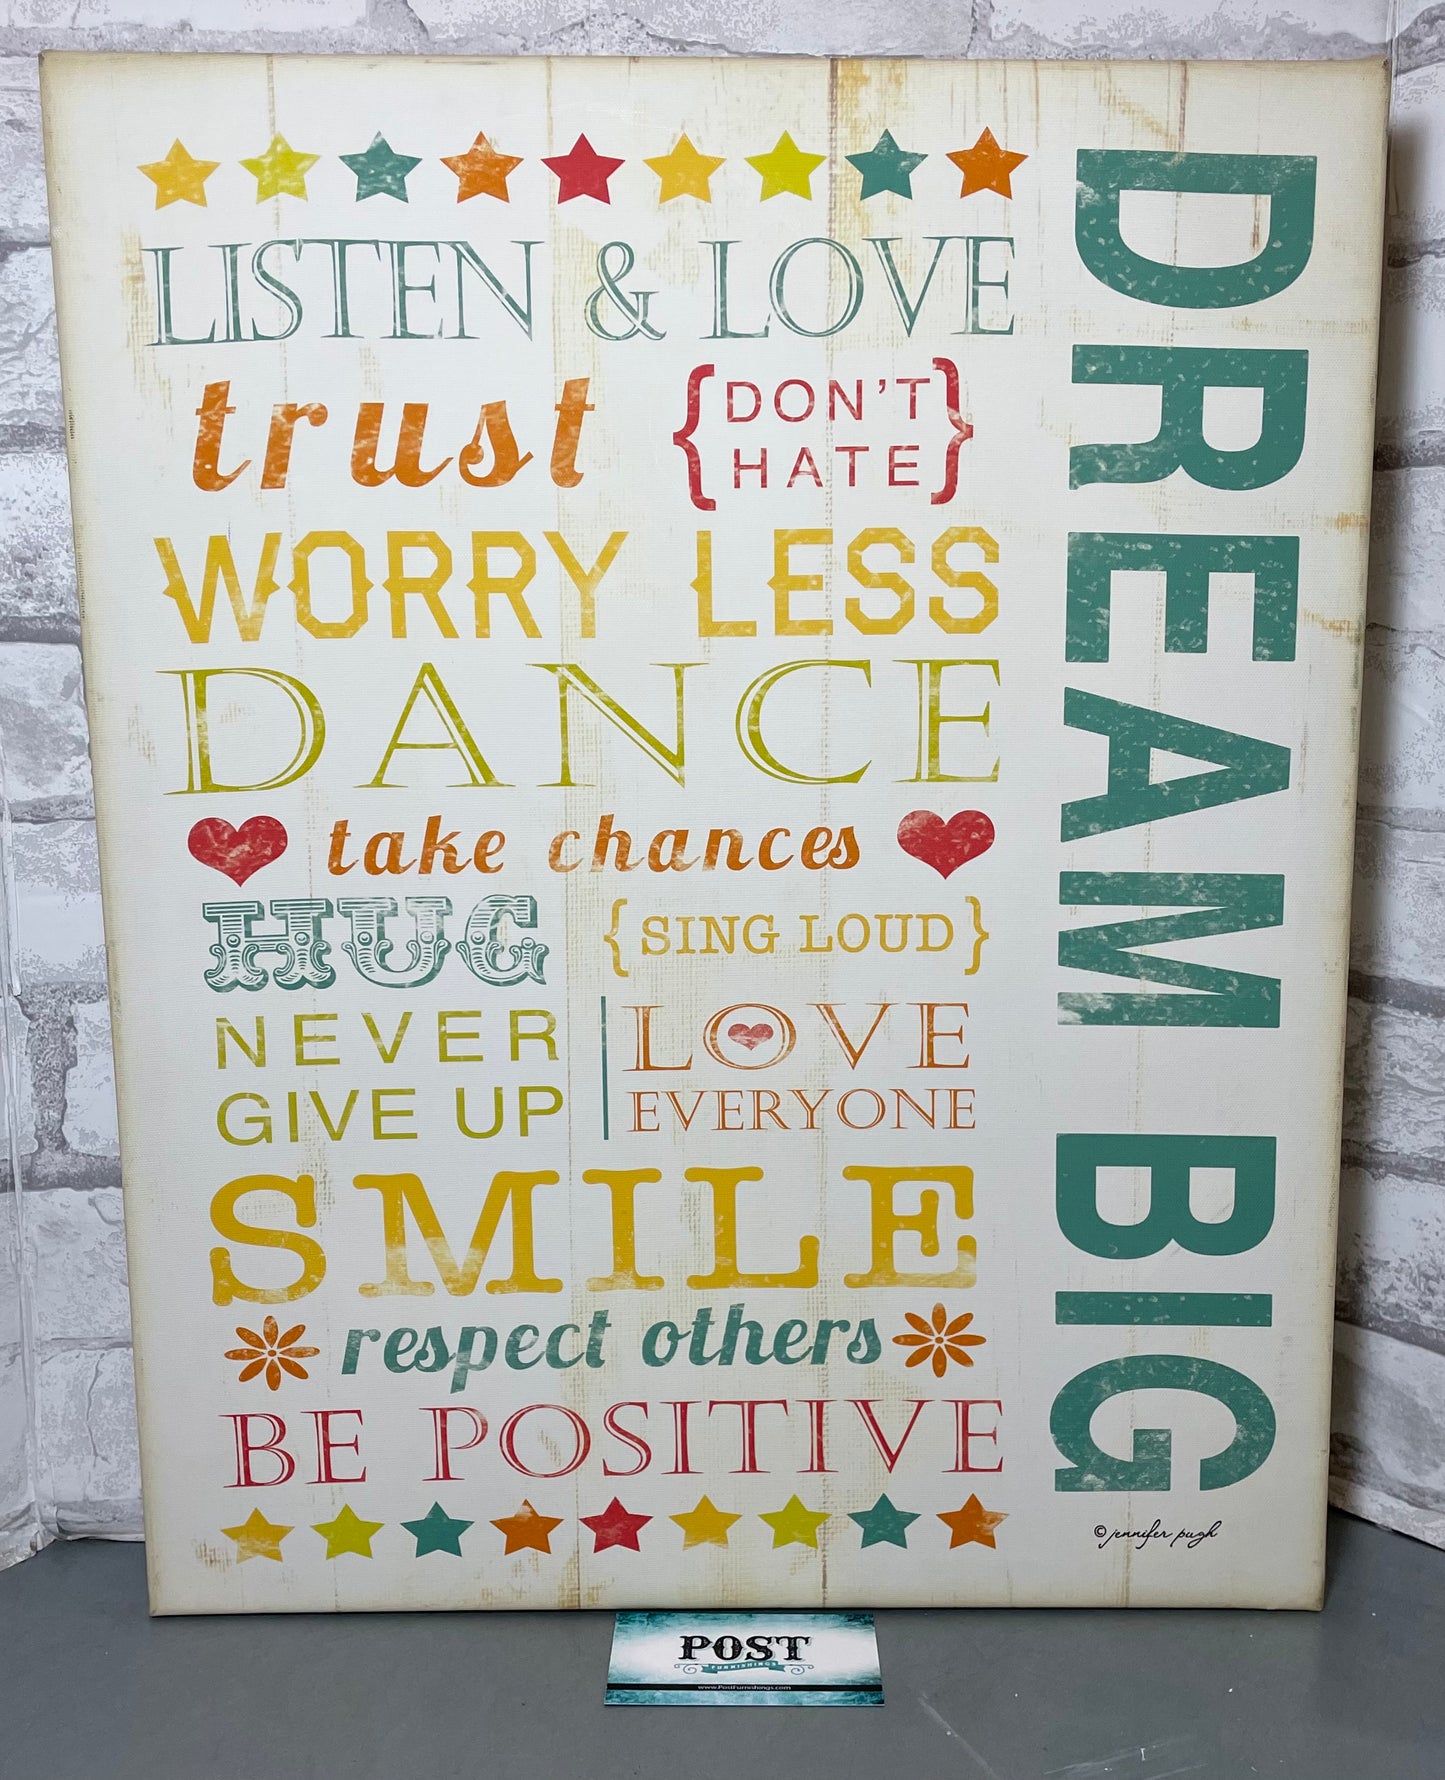 LISTEN & LOVE
trust
{DON'T
HATE}
WORRY LESS
DANCE
take chances
HUG
{SING LOUD}
NEVER
GIVE UP
LOVE
EVERYONE
SMILE
respect others
BE POSITIVE
DREAM BIG
©jennifer pugh
POST
FURNISHINGS
www.PostFurnishings.com